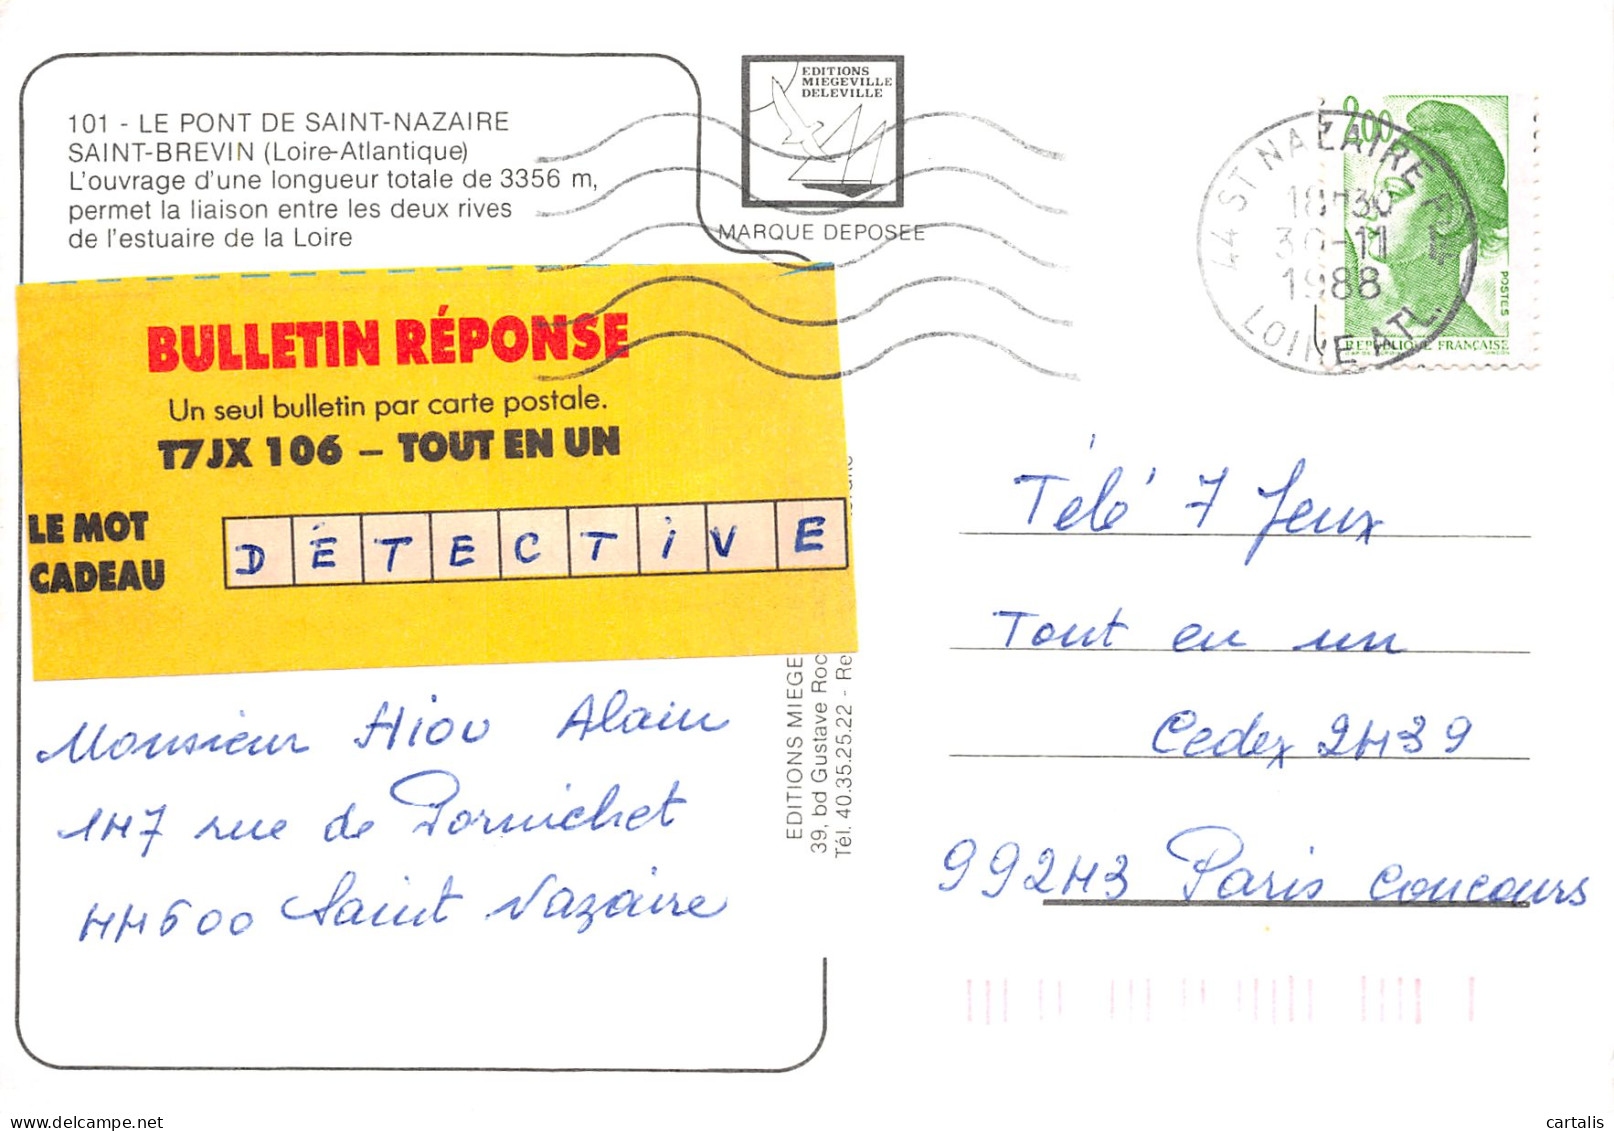 101 - LE PONT DE SAINT-NAZAIRE
SAINT-BREVIN (Loire-Atlantique)
L'ouvrage d'une longueur totale de 3356 m,
permet la liaison entre les deux rives
de l'estuaire de la Loire
EDITIONS
MIEGEVILLE
DELEVILLE
MARQUE DEPOSEE
2,00
POSTES
REPUBLIQUE FRANÇAISE
44 ST NAZAIRE
18H30
30-11
1988
LOIRE ATL.
BULLETIN RÉPONSE
Un seul bulletin par carte postale.
T7JX 106 – TOUT EN UN
LE MOT
CADEAU
DÉTECTIVE
Monsieur Hiou Alain
147 rue de Pornichet
44600 Saint Nazaire
EDITIONS MIEGE
39, bd Gustave Roc
Tél. 40.35.25.22 - Re
Télé 7 Jeux
Tout en un
Cedex 2439
99243 Paris concours
cartalis